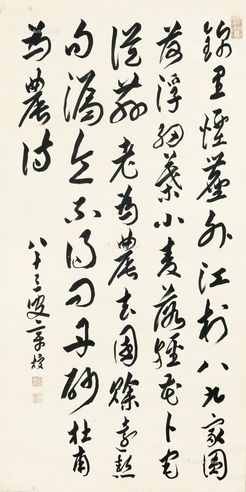 錦里煙塵外江村八九家圓
荷浮細葉小麥落輕花卜宅
從茲老為農去國賒遠慙
句漏令不得問丹砂杜甫
為農詩
八十三叟